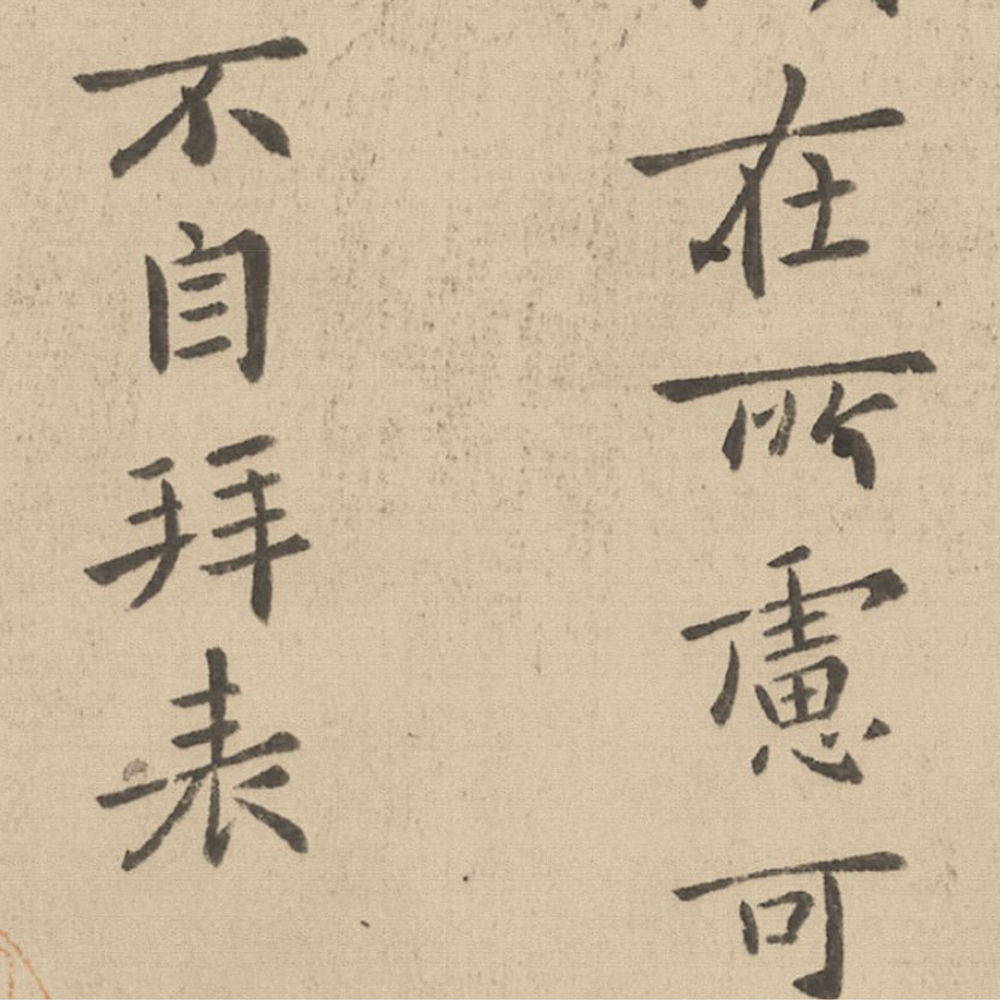 在所慮可
不自拜表